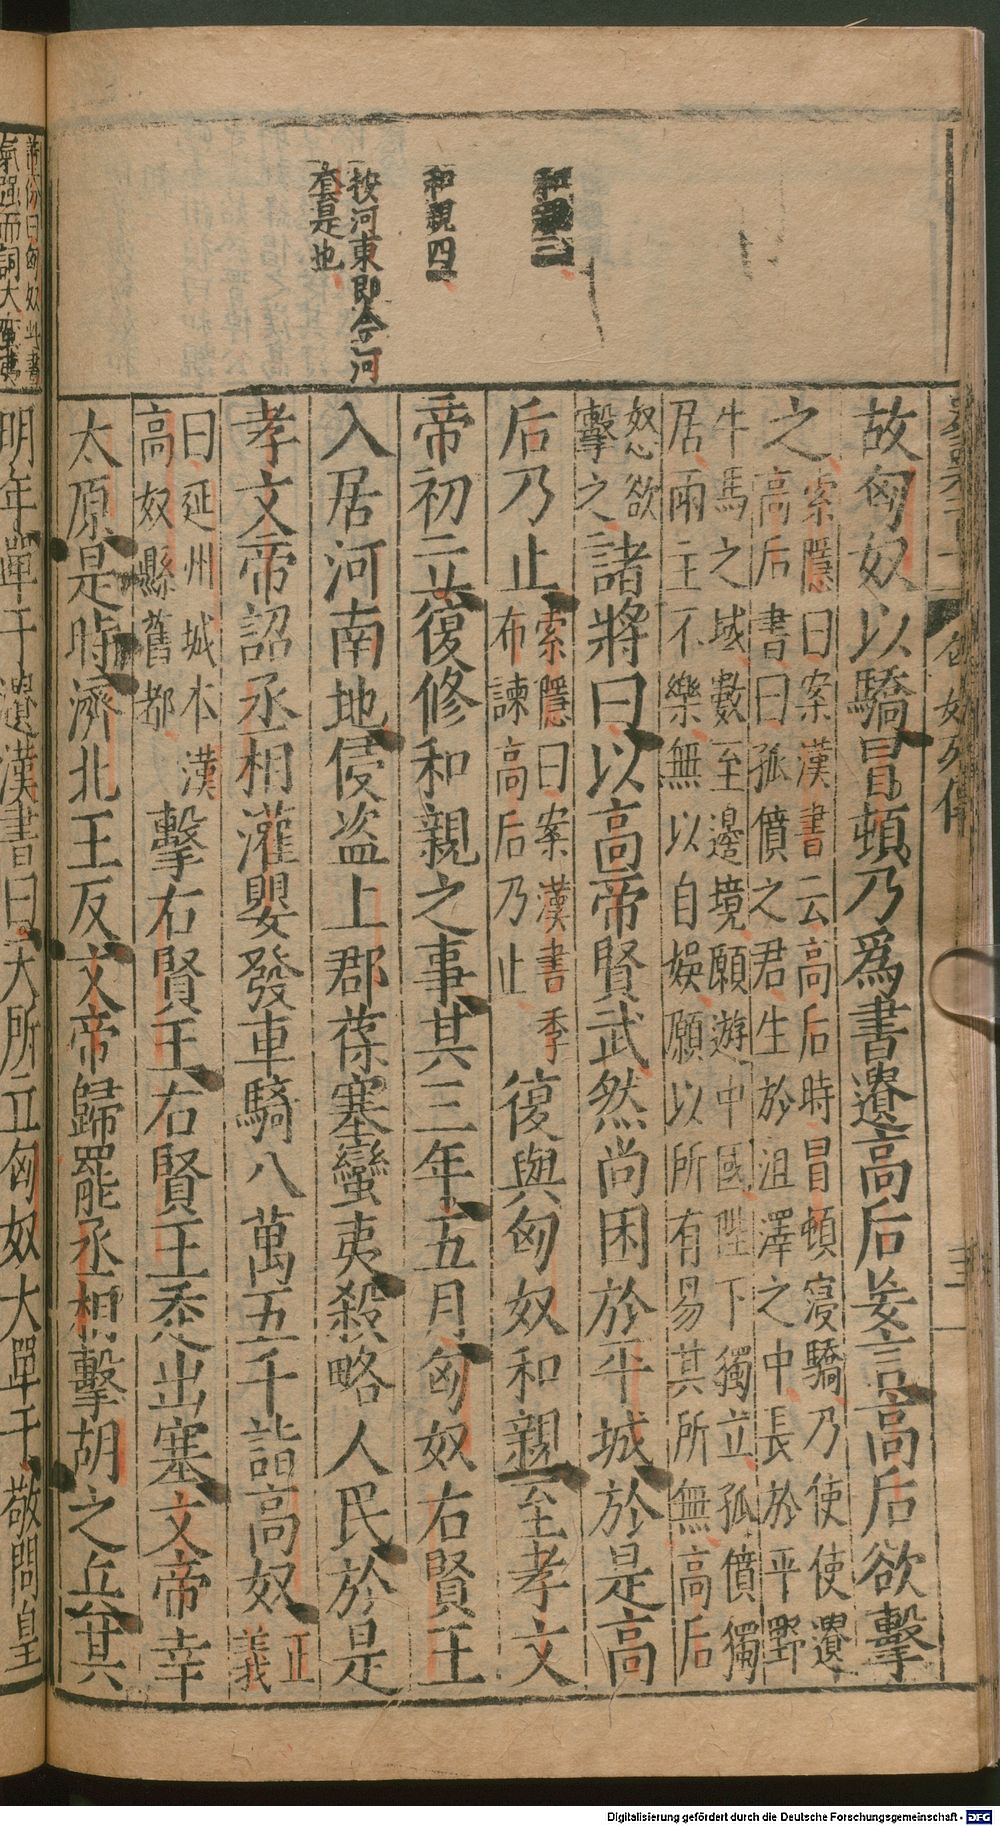 和親三
和親四
按河東即今河
套是也
匈奴列傳
三
故匈奴以驕冒頓乃爲書遺高后妄言高后欲擊
之
索隱曰案漢書云高后時冒頓寖驕乃使使遺
高后書曰孤僨之君生於沮澤之中長於平野
牛馬之域數至邊境願遊中國陛下獨立孤僨獨
居兩主不樂無以自娛願以所有易其所無高后
怒欲
擊之
諸將曰以高帝賢武然尚困於平城於是高
后乃止
索隱曰案漢書季
布諫高后乃止
復與匈奴和親至孝文
帝初立復修和親之事其三年五月匈奴右賢王
入居河南地侵盜上郡葆塞蠻夷殺略人民於是
孝文帝詔丞相灌嬰發車騎八萬五千詣高奴
正
義
曰延州城本漢
高奴縣舊都
擊右賢王右賢王走出塞文帝幸
太原是時濟北王反文帝歸罷丞相擊胡之兵其
曰匈奴此書
氣强而詞大
明年單于遺漢書曰天所立匈奴大單于敬問皇
Digitalisierung gefördert durch die Deutsche Forschungsgemeinschaft - DFG